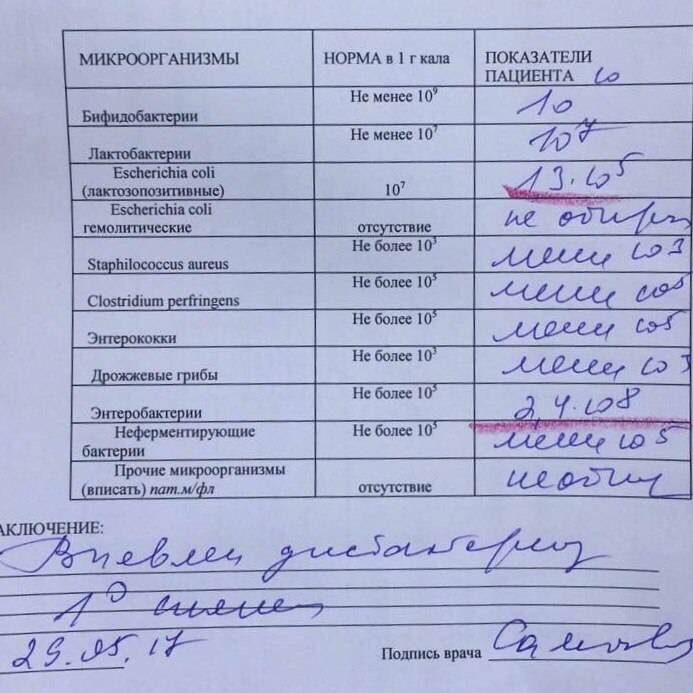 МИКРООРГАНИЗМЫ НОРМА в 1 г кала ПОКАЗАТЕЛИ ПАЦИЕНТА
Бифидобактерии Не менее 10⁹ 10¹⁰
Лактобактерии Не менее 10⁷ 10⁷
Escherichia coli (лактозопозитивные) 10⁷ 13·10⁵
Escherichia coli гемолитические отсутствие не обнаруж
Staphilococcus aureus Не более 10³ менее 10³
Clostridium perfringens Не более 10⁵ менее 10⁵
Энтерококки Не более 10⁵ менее 10⁵
Дрожжевые грибы Не более 10³ менее 10³
Энтеробактерии Не более 10⁵ 2,4·10⁸
Неферментирующие бактерии Не более 10⁵ менее 10⁵
Прочие микроорганизмы (вписать) пат.м/фл отсутствие не обнар
АКЛЮЧЕНИЕ:
Выявлен дисбактериоз
1 степени
29.05.17 Подпись врача